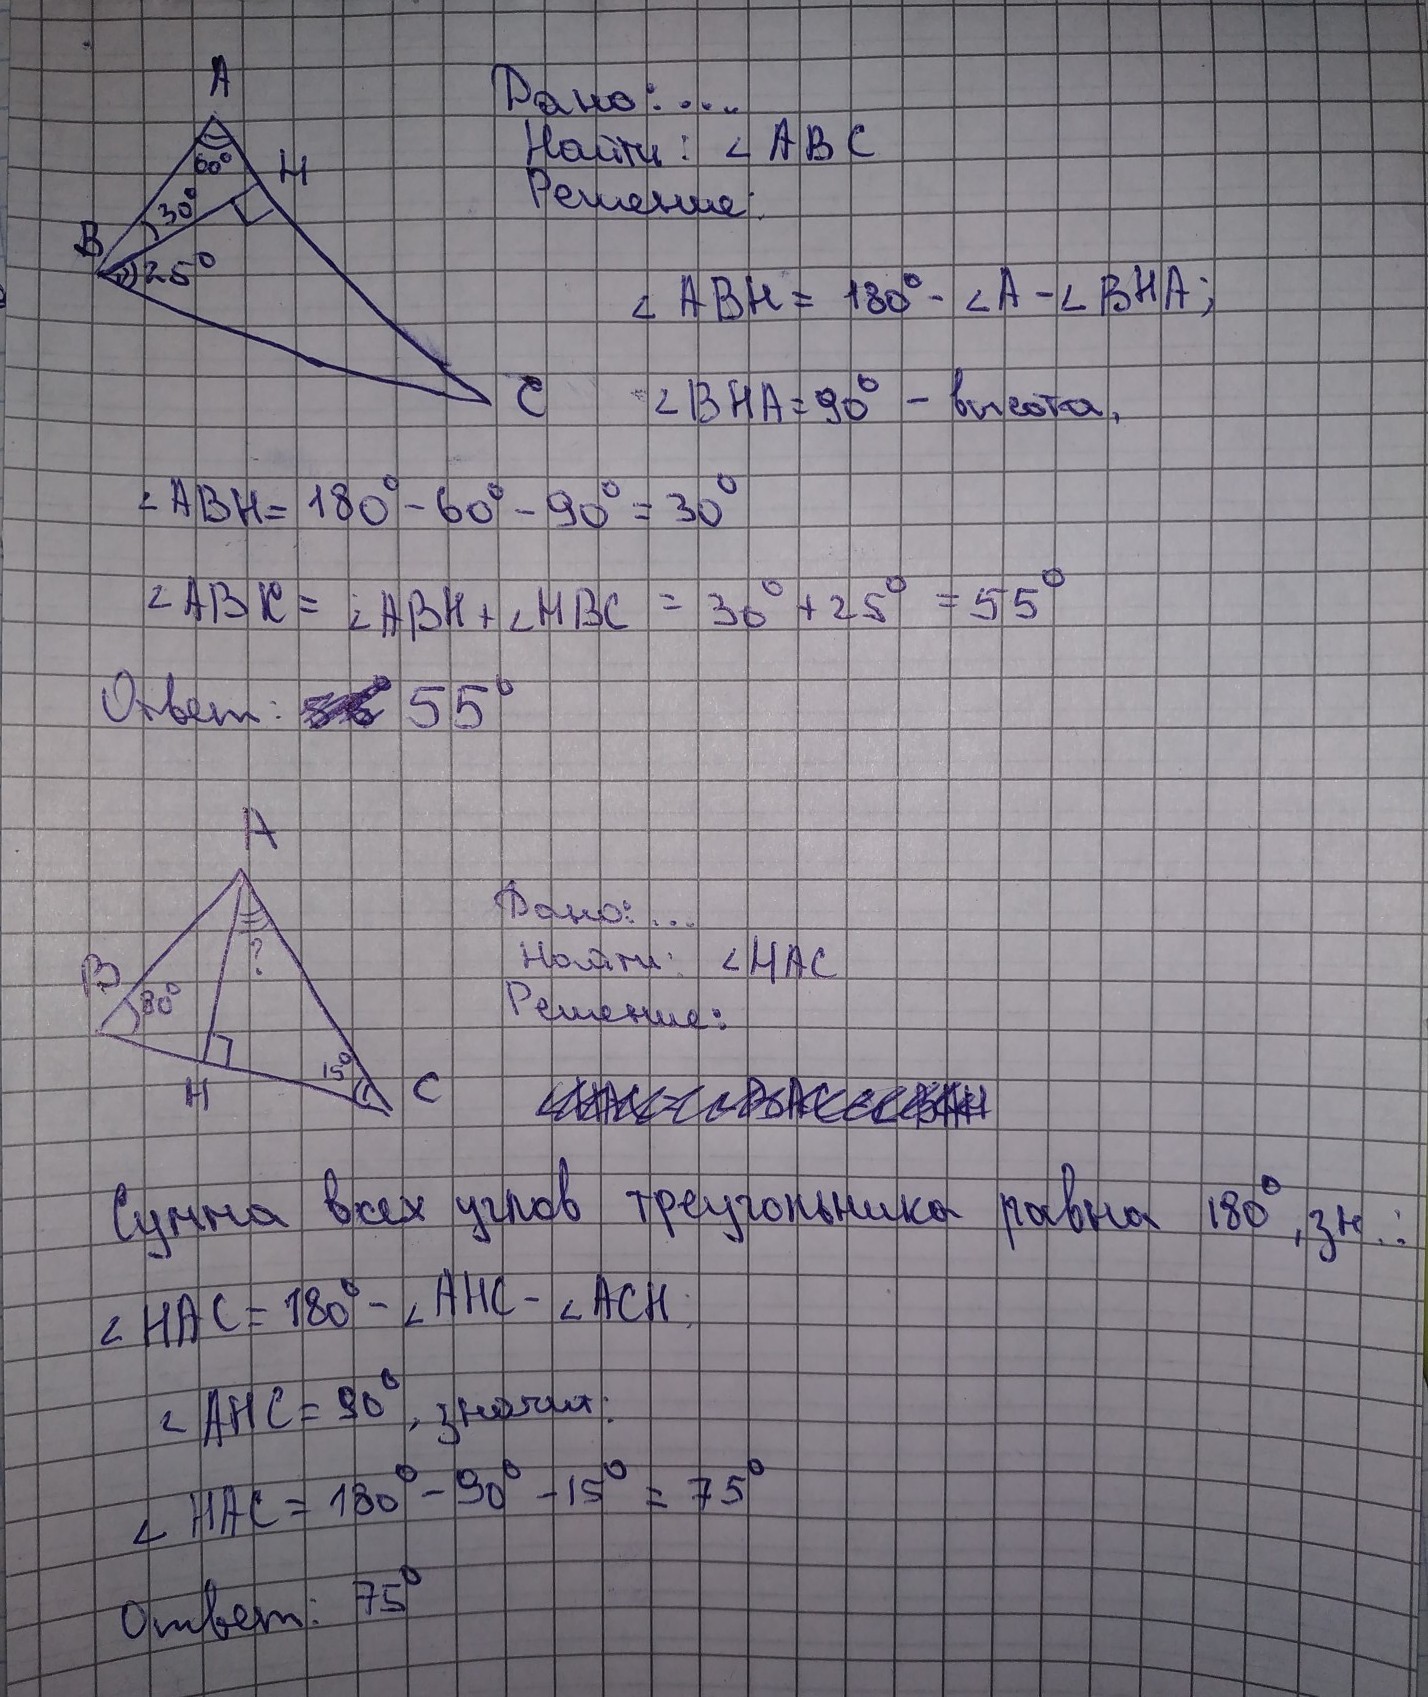 A
60°
H
30°
B
25°
C
Дано: ....
Найти: ∠ABC
Решение:
∠ABH = 180° - ∠A - ∠BHA;
∠BHA = 90° - высота,
∠ABH = 180° - 60° - 90° = 30°
∠ABC = ∠ABH + ∠HBC = 30° + 25° = 55°
Ответ: 55°
A
?
B
80°
H
15°
C
Дано: ...
Найти: ∠HAC
Решение:
Сумма всех углов треугольника равна 180°, зн.:
∠HAC = 180° - ∠AHC - ∠ACH
∠AHC = 90°, значит:
∠HAC = 180° - 90° - 15° = 75°
Ответ: 75°